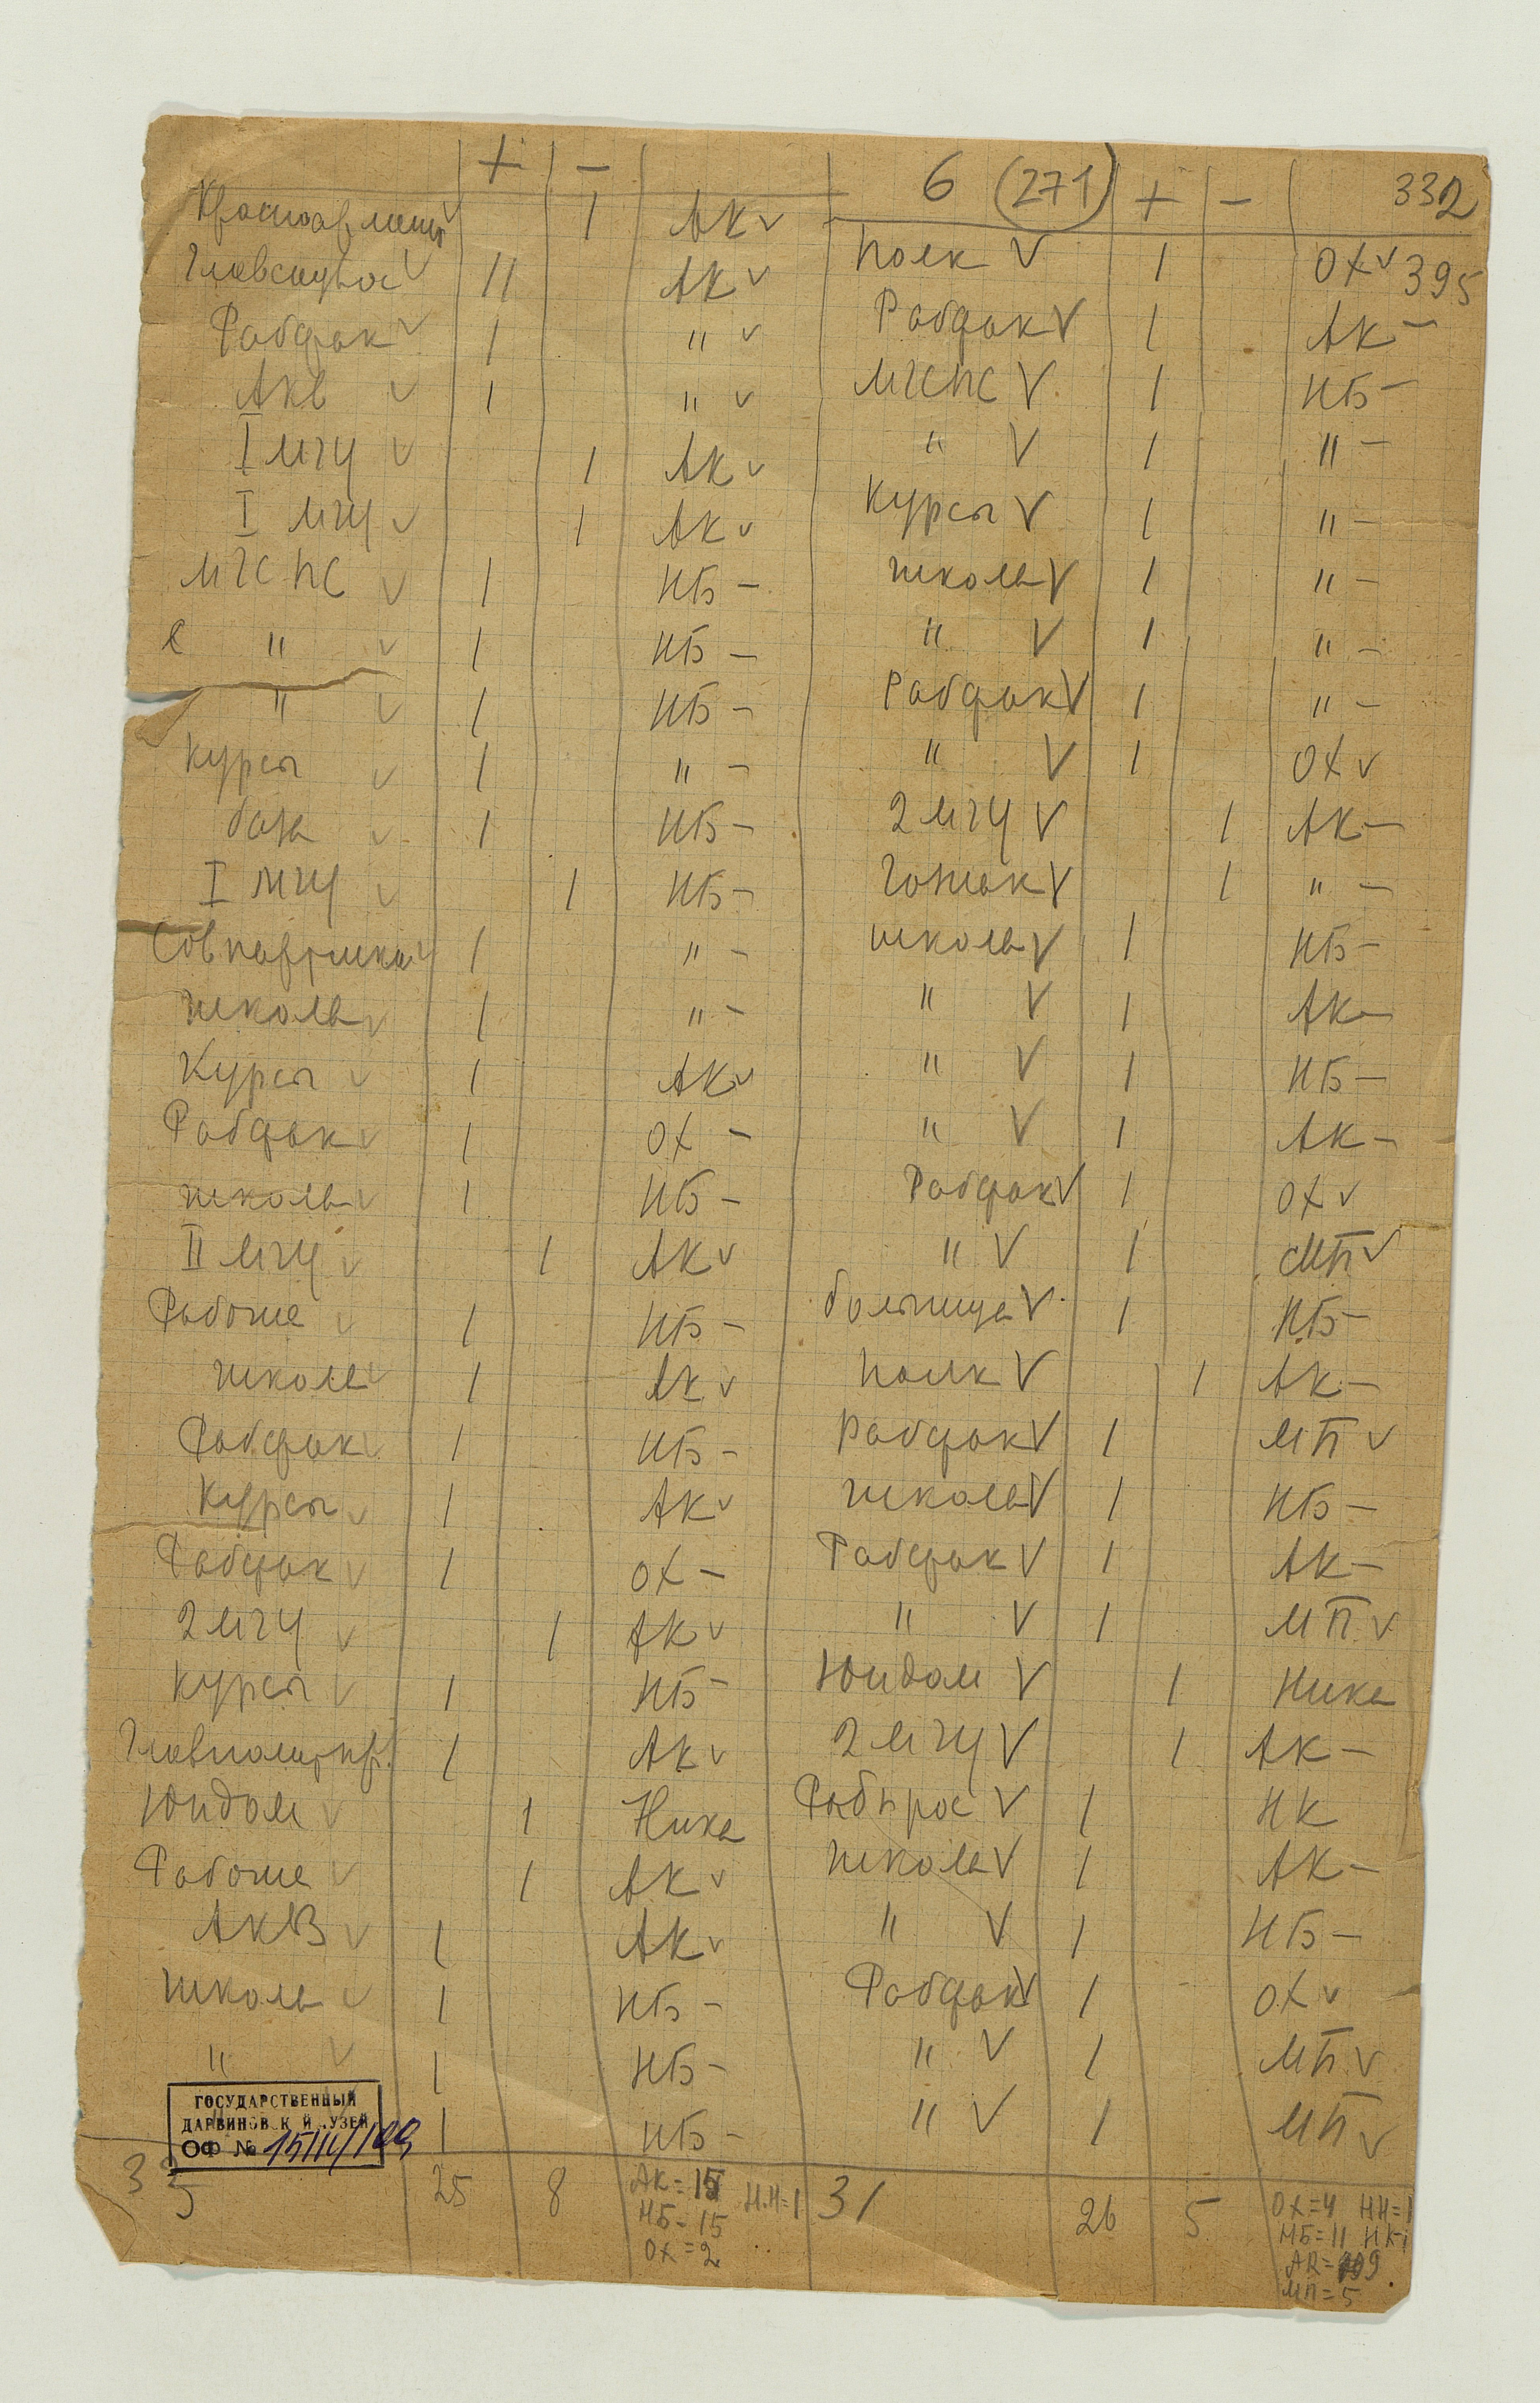 + | − | 
Красноармейцы v | | 1 | АК v
Главсоцвос v | 11 | | АК v
Рабфак v | 1 | | " v
Акв v | 1 | | " v
I МГУ v | | 1 | АК v
I МГУ v | | 1 | АК v
МГСПС v | 1 | | НБ –
" v | 1 | | НБ –
" v | 1 | | НБ –
Курсы v | 1 | | " –
v | 1 | | НБ –
I МГУ v | | 1 | НБ –
Совпартшкола v | 1 | | " –
школа v | 1 | | " –
Курсы v | 1 | | АК v
Рабфак v | 1 | | ОХ –
школа v | 1 | | НБ –
II МГУ v | | 1 | АК v
Рабочие v | 1 | | НБ –
школа v | 1 | | АК v
Рабфак v | 1 | | НБ –
Курсы v | 1 | | АК v
Рабфак v | 1 | | ОХ –
2 МГУ v | | 1 | АК v
Курсы v | 1 | | НБ –
Главполитпр. | 1 | | АК v
Юндом v | | 1 | Ника
Рабочие v | | 1 | АК v
АКВ v | 1 | | АК v
школа v | 1 | | НБ –
" v | 1 | | НБ –
1 | | НБ –
ГОСУДАРСТВЕННЫЙ
ДАРВИНОВСКИЙ МУЗЕЙ
ОФ №
25 | 8 | АК = 15 Н.Н = 1
НБ = 15
ОХ = 2
6 (271) + | − | 332
Полк V | 1 | | ОХ v 395
Рабфак V | 1 | | АК –
МГСПС V | 1 | | НБ –
" V | 1 | | " –
Курсы V | 1 | | " –
школа V | 1 | | " –
" V | 1 | | " –
Рабфак V | 1 | | " –
" V | 1 | | ОХ v
2 МГУ V | | 1 | АК –
V | | 1 | " –
школа V | 1 | | НБ –
" V | 1 | | АК –
" V | 1 | | НБ –
" V | 1 | | АК –
Рабфак V | 1 | | ОХ v
" V | 1 | | МП v
больница V | 1 | | НБ –
Полк V | | 1 | АК –
Рабфак V | 1 | | МП v
школа V | 1 | | НБ –
Рабфак V | 1 | | АК –
" V | 1 | | МП v
Юндом V | | 1 | Ника
2 МГУ V | | 1 | АК –
Рабпрос V | 1 | | НК
школа V | 1 | | АК –
" V | 1 | | НБ –
Рабфак V | 1 | | ОХ v
" V | 1 | | МП v
" V | 1 | | МП v
31 | 26 | 5 | ОХ = 4 НН = 1
НБ = 11 НК = 1
АК = 9
МП = 5